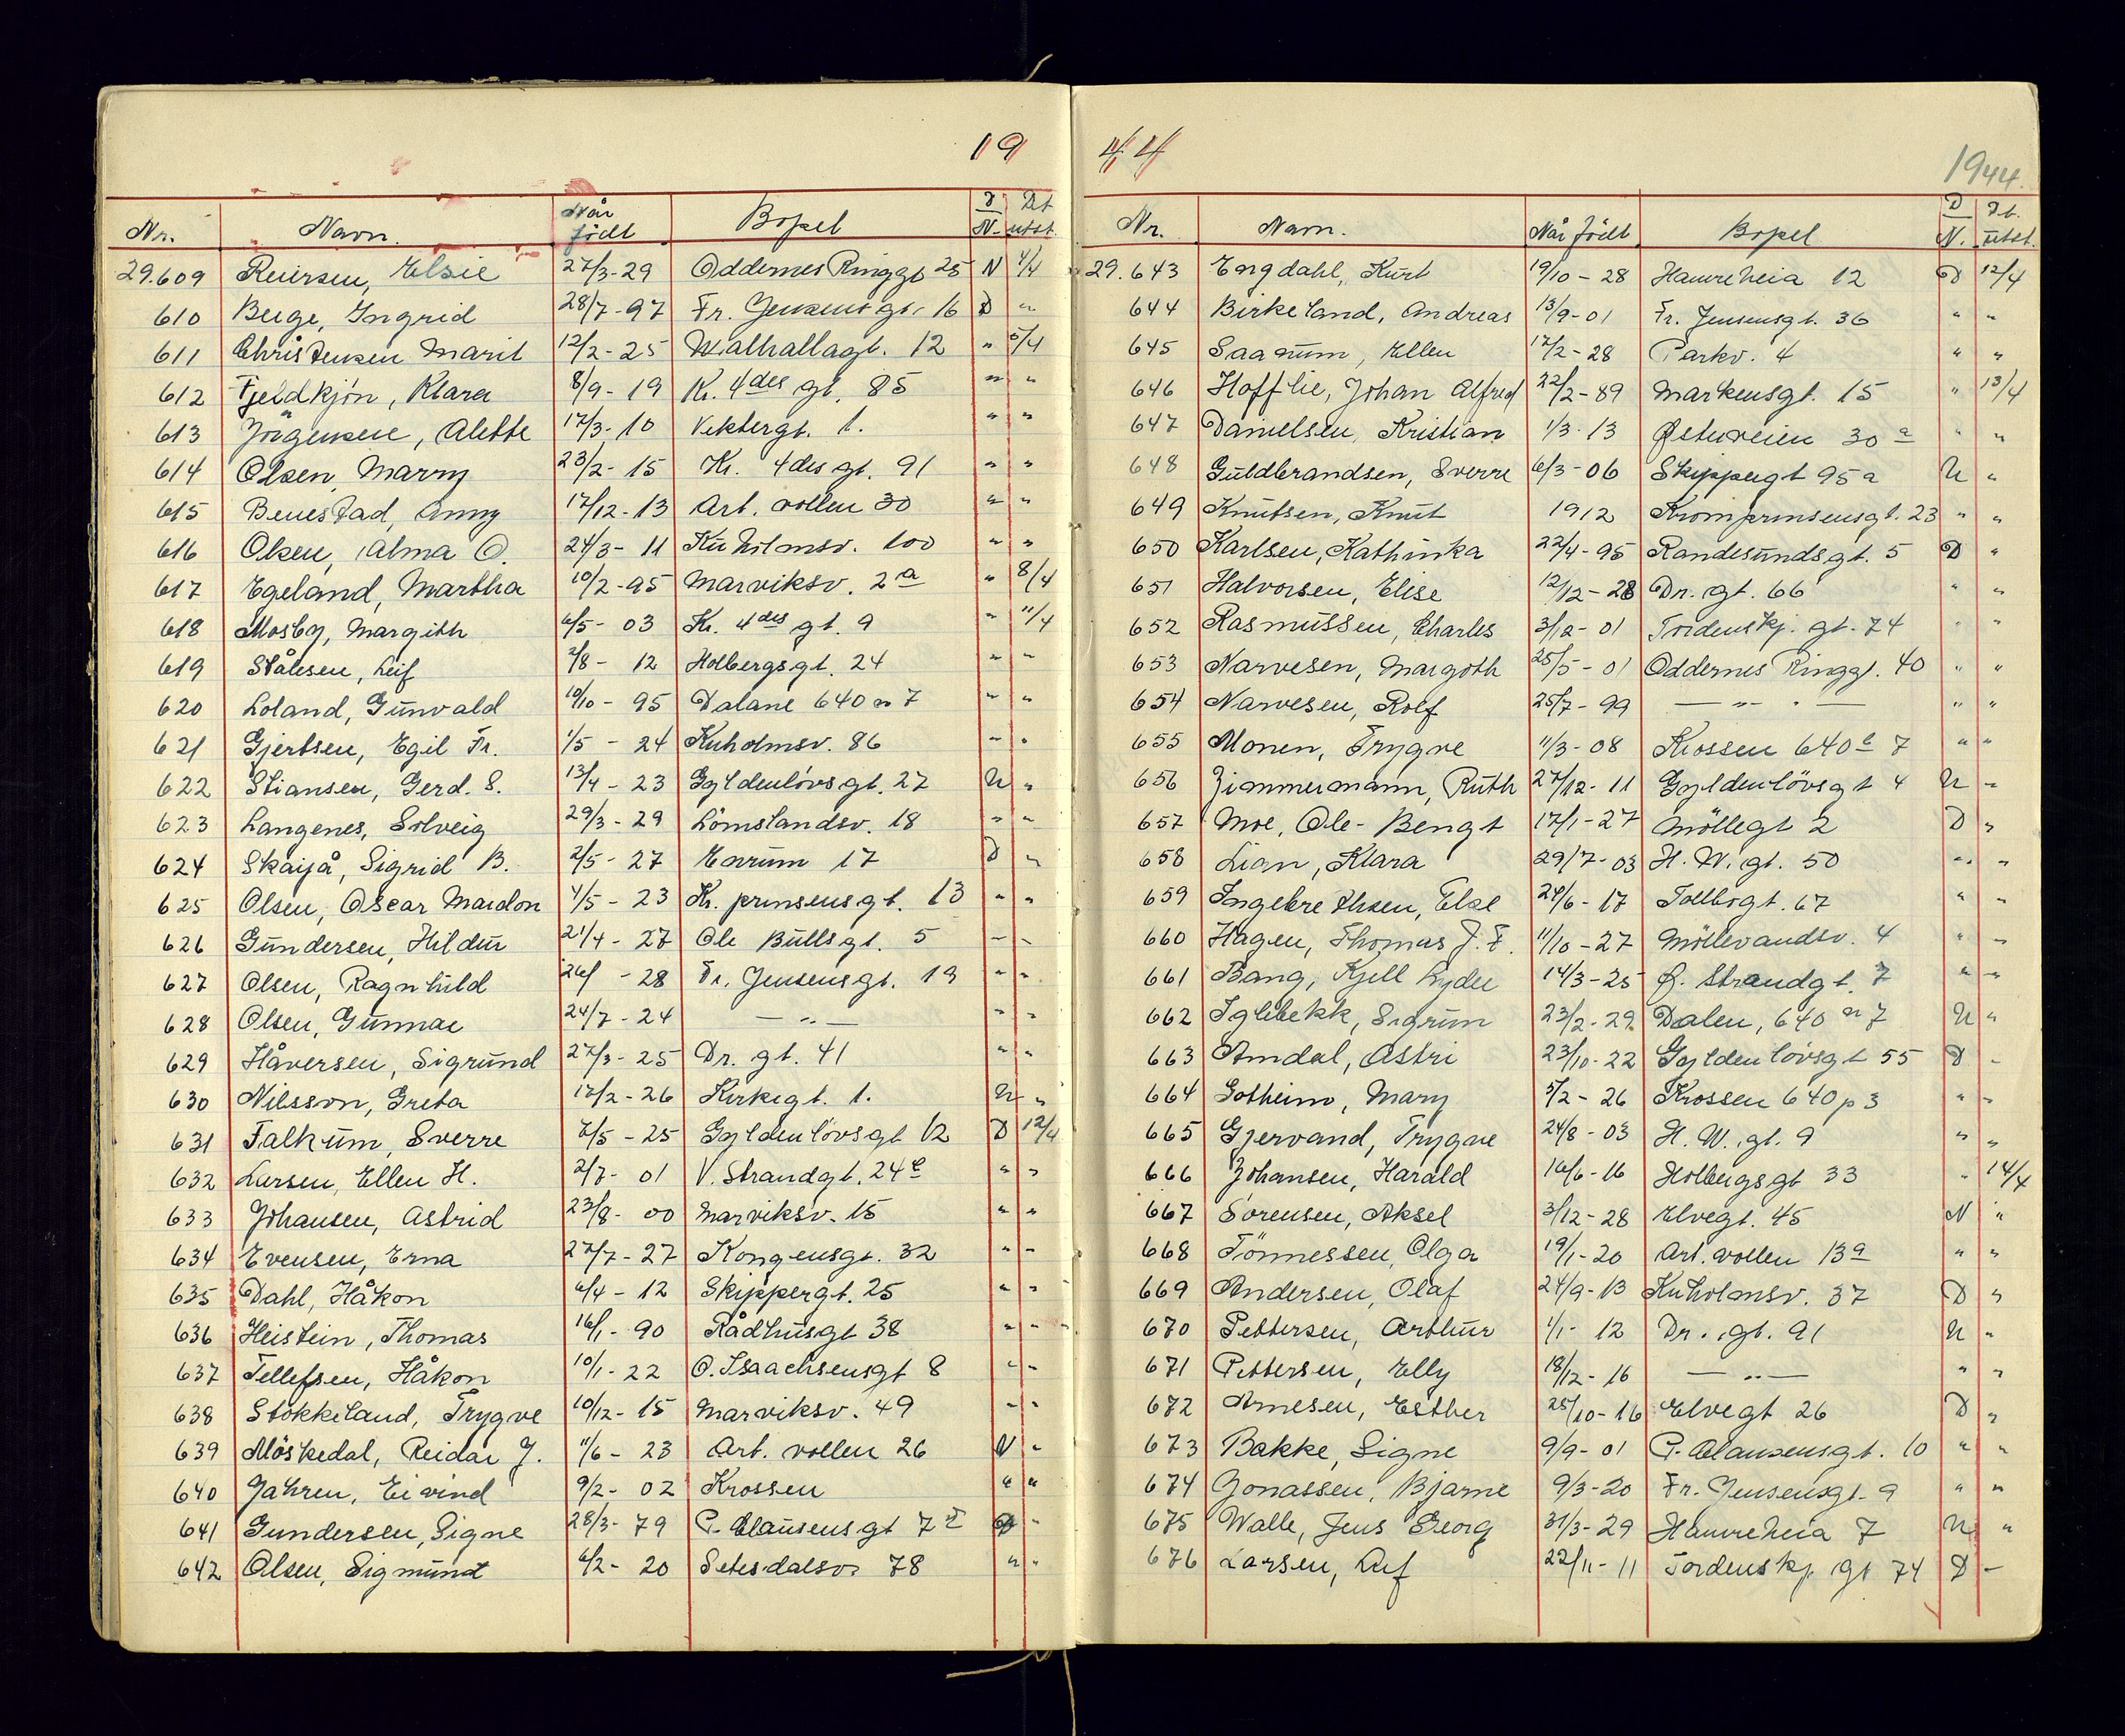 19
Nr. Navn. Når født Bopel D/N. Dt utst.
29.609 Reiersen, Elsie 27/3-29 Oddernes Ringgt 25 N 4/4
610 Berge, Ingrid 28/7-97 Fr. Jensensgt. 16 D "
611 Christensen Marit 12/2-25 Walhallagt. 12 " 5/4
612 Fjeldkjön, Klara 8/9-19 Kr. 4des gt. 85 " "
613 Jörgensen, Alette 17/3-10 Vektergt. 1. " "
614 Olsen, Marry 23/2-15 Kr. 4des gt. 91 " "
615 Benestad, Anny 17/12-13 Art. vollen 30 " "
616 Olsen, Alma O. 24/3-11 Kuholmsv. 100 " "
617 Egeland, Martha 10/2-95 Marviksv. 2a " 8/4
618 Mosby, Margith 6/5-03 Kr. 4des gt. 9 " 11/4
619 Stålesen, Leif 2/8-12 Holbergsgt. 24 " "
620 Loland, Gunvald 10/10-95 Dalane 640 n 7 " "
621 Gjertsen, Egil Fr. 1/5-24 Kuholmsv. 86 " "
622 Stiansen, Gerd. S. 13/4-23 Gyldenlövsgt. 27 N "
623 Langenes, Solveig 29/3-29 Lömslandsv. 18 " "
624 Skaijå, Sigrid B. 2/5-27 17 D "
625 Olsen, Oscar Mardon 4/5-23 Kr. prinsensgt. 13 " "
626 Gundersen, Hildur 21/4-27 Ole Bullsgt. 5 " "
627 Olsen, Ragnhild 26/ -28 Fr. Jensensgt. 19 " "
628 Olsen, Gunnar 24/7-24 — " — " "
629 Håversen, Sigrund 27/3-25 Dr. gt. 41 " "
630 Nilsson, Greta 17/2-26 Kirkegt. 1. N "
631 Falkum, Sverre 7/5-25 Gyldenlövsgt 12 D 12/4
632 Larsen, Ellen H. 2/7-01 V. Strandgt. 24e " "
633 Johansen, Astrid 23/8-00 Marviksv. 15 " "
634 Evensen, Erna 27/7-27 Kongensgt. 32 " "
635 Dahl, Håkon 6/4-12 Skippergt. 25 " "
636 Heistein, Thomas 16/1-90 Rådhusgt 38 " "
637 Tellefsen, Håkon 10/1-22 O. Isaachsensgt 8 " "
638 Stokkeland, Trygve 10/12-15 Marviksv. 49 " "
639 Möskedal, Reidar J. 11/6-23 Art. vollen 26 N "
640 Jahren, Eivind 9/2-02 Krossen " "
641 Gundersen, Signe 28/3-79 P. Clausensgt 7 D "
642 Olsen, Sigmund 6/2-20 Setesdalsv. 78 " "
44
1944.
Nr. Navn. Når født Bopel D/N. Dt. utst.
29.643 Engdahl, Kurt 19/10-28 Hamreheia 12 D 12/4
644 Birkeland, Andreas 13/9-01 Fr. Jensensgt. 36 " "
645 Saanum, Ellen 17/2-28 Parkv. 4 " "
646 Hofflie, Johan Alfred 22/2-89 Markensgt. 15 " 13/4
647 Danielsen, Kristian 1/3-13 Østerveien 30a " "
648 Guldbrandsen, Sverre 6/3-06 Skippergt 95a N "
649 Knutsen, Knut 1912 Kronprinsensgt. 23 " "
650 Karlsen, Kathinka 22/4-95 Randesundsgt. 5 D "
651 Halvorsen, Elise 12/12-28 Dr. gt. 66 " "
652 Rasmussen, Charles 3/12-01 Tordenskj. gt. 74 " "
653 Narvesen, Margoth 25/5-01 Oddernes Ringgt. 40 " "
654 Narvesen, Rolf 25/7-99 — " — " "
655 Monen, Trygve 11/3-08 Krossen 640e 7 " "
656 Zimmermann, Ruth 27/12-11 Gyldenlövsgt 4 N "
657 Moe, Ole-Bengt 17/1-27 Möllegt 2 D "
658 Lian, Klara 29/7-03 H. W. gt. 50 " "
659 Ingebrethsen, Else 24/6-17 Tollbogt. 67 " "
660 Hagen, Thomas J. F. 11/10-27 Möllevandsv. 4 " "
661 Bang, Kjell Lyder 14/3-25 Ø. Strandgt. 7 " "
662 Iglebekk, Sigrun 23/2-29 Dalen, 640 n 7 N "
663 Amdal, Astri 23/10-22 Gyldenlövsgt 55 D "
664 Gotheim, Mary 5/2-26 Krossen 640 p 3 " "
665 Gjervand, Trygve 24/8-03 H. W. gt. 9 " "
666 Johansen, Harald 16/6-16 Holbergsgt 33 " 14/4
667 Sörensen, Aksel 3/12-28 Elvegt. 45 N "
668 Tönnessen, Olga 19/1-20 Art. vollen 13a " "
669 Andersen, Olaf 24/9-13 Kuholmsv. 37 D "
670 Pettersen, Arthur 1/1-12 Dr. gt. 91 N "
671 Pettersen, Elly 18/12-16 — " — " "
672 Arnesen, Esther 25/10-16 Elvegt 26 D "
673 Bakke, Signe 9/9-01 P. Clausensgt. 10 " "
674 Jonassen, Bjarne 9/3-20 Fr. Jensensgt. 9 " "
675 Walle, Jens Georg 31/3-29 Hamreheia 7 N "
676 Larsen, Leif 22/11-11 Tordenskj. gt 74 D "